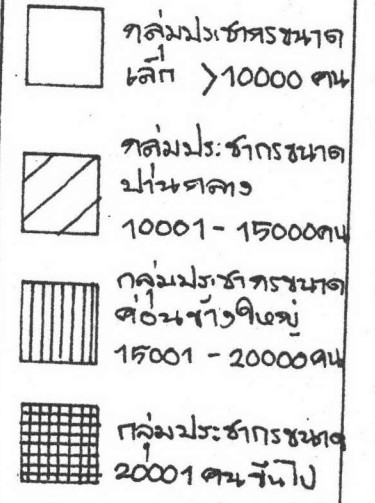 กลุ่มประชากรขนาด
เล็ก >10000 คน
กลุ่มประชากรขนาด
ปานกลาง
10001 - 15000คน
กลุ่มประชากรขนาด
ค่อนข้างใหญ่
15001 - 20000คน
กลุ่มประชากรขนาด
20001 คนขึ้นไป